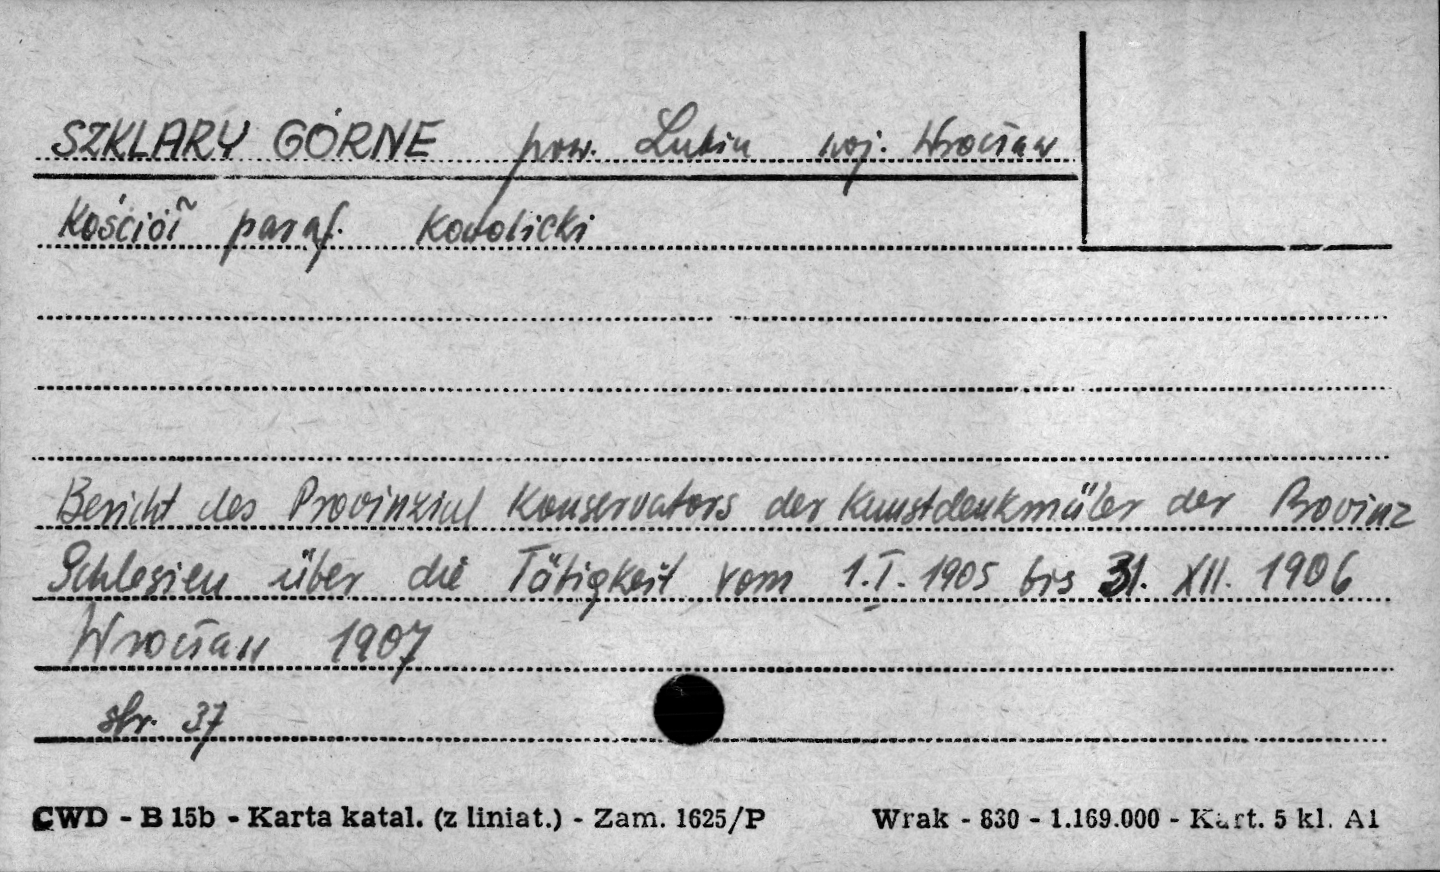 SZKLARY GÓRNE pow. Lubin woj. Wrocław
Kościół paraf. Katolicki
Bericht des Provinzial Konservators der Kunstdenkmäler der Provinz
Schlesien über die Tätigkeit vom 1.I. 1905 bis 31. XII. 1906
Wrocław 1907
str. 37
CWD - B 15b - Karta katal. (z liniat.) - Zam. 1625/P Wrak - 830 - 1.169.000 - Kart. 5 kl. A1